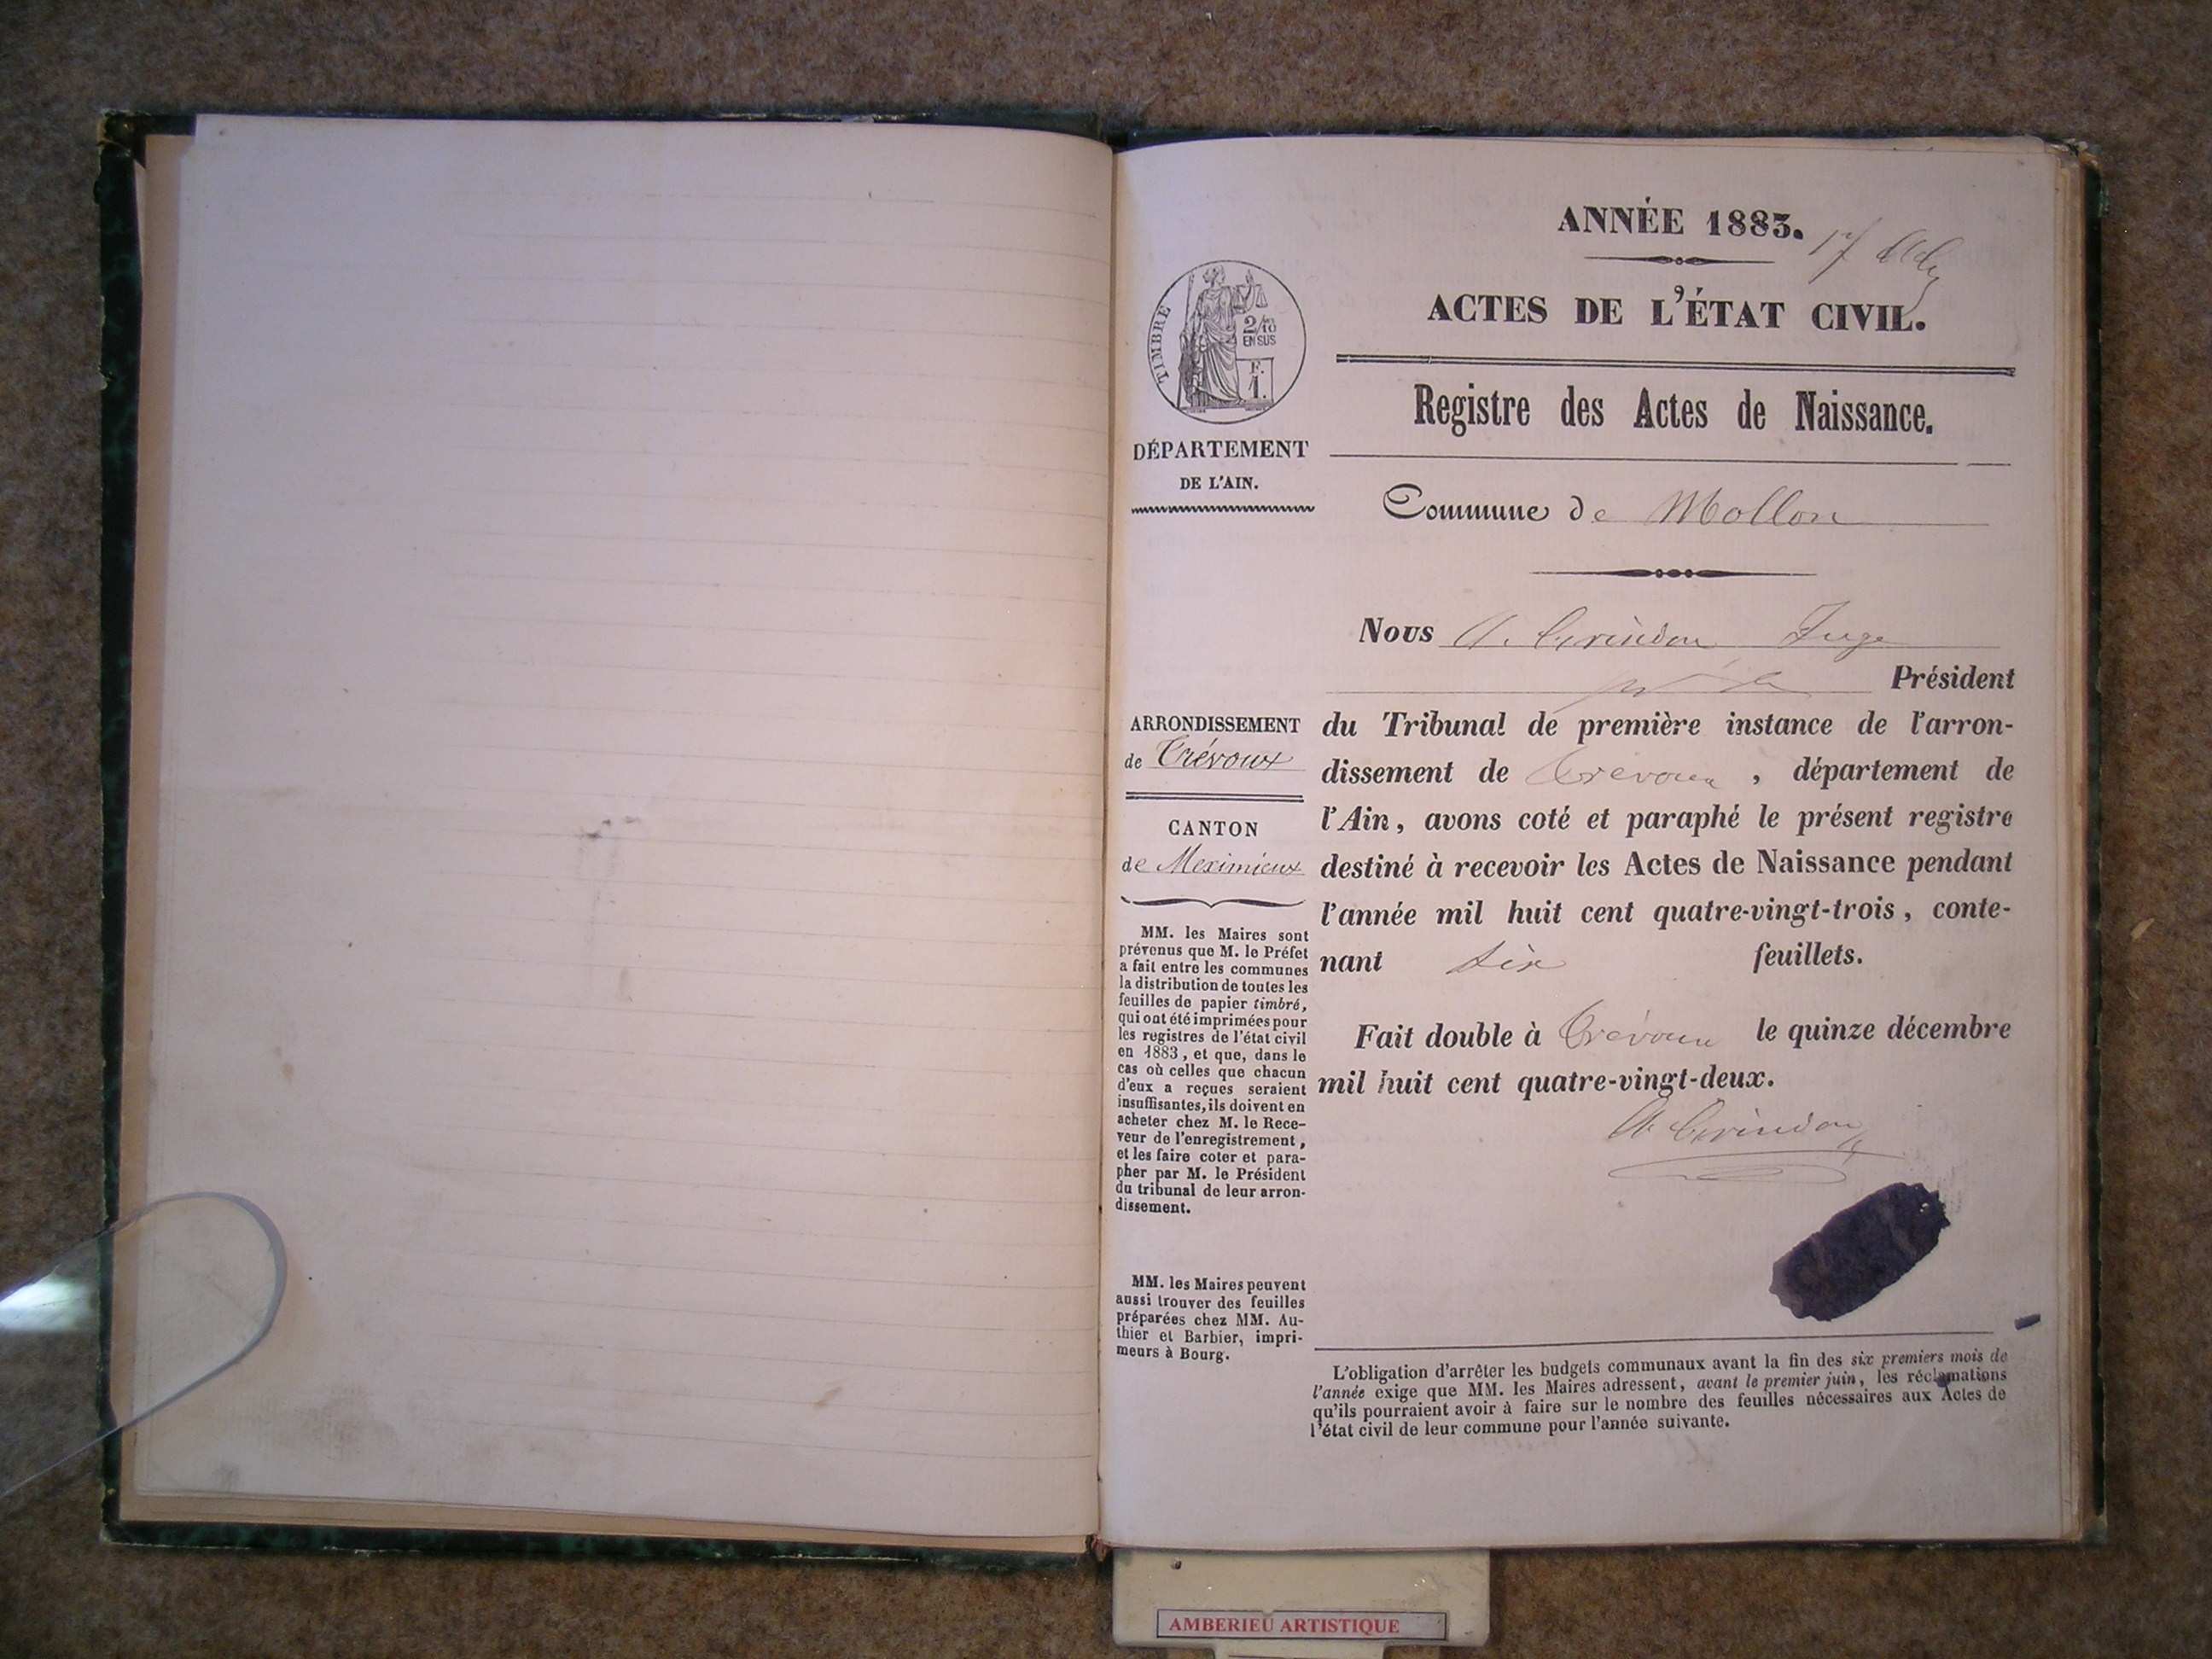 ANNÉE 1883.
ACTES DE L'ÉTAT CIVIL.
Registre des Actes de Naissance.
TIMBRE
2/10
EN SUS
F.
1.
DÉPARTEMENT
DE L'AIN.
Commune de Mollon
Nous A. Juge
Président
du Tribunal de première instance de l'arron-
dissement de Trévoux, département de
l'Ain, avons coté et paraphé le présent registre
destiné à recevoir les Actes de Naissance pendant
l'année mil huit cent quatre-vingt-trois, conte-
nant six feuillets.
Fait double à Trévoux le quinze décembre
mil huit cent quatre-vingt-deux.
ARRONDISSEMENT
de Trévoux
CANTON
de Meximieux
MM. les Maires sont
prévenus que M. le Préfet
a fait entre les communes
la distribution de toutes les
feuilles de papier timbré,
qui ont été imprimées pour
les registres de l'état civil
en 1883, et que, dans le
cas où celles que chacun
d'eux a reçues seraient
insuffisantes, ils doivent en
acheter chez M. le Rece-
veur de l'enregistrement,
et les faire coter et para-
pher par M. le Président
du tribunal de leur arron-
dissement.
MM. les Maires peuvent
aussi trouver des feuilles
préparées chez MM. Au-
thier et Barbier, impri-
meurs à Bourg.
L'obligation d'arrêter les budgets communaux avant la fin des six premiers mois de
l'année exige que MM. les Maires adressent, avant le premier juin, les réclamations
qu'ils pourraient avoir à faire sur le nombre des feuilles nécessaires aux Actes de
l'état civil de leur commune pour l'année suivante.
AMBERIEU ARTISTIQUE